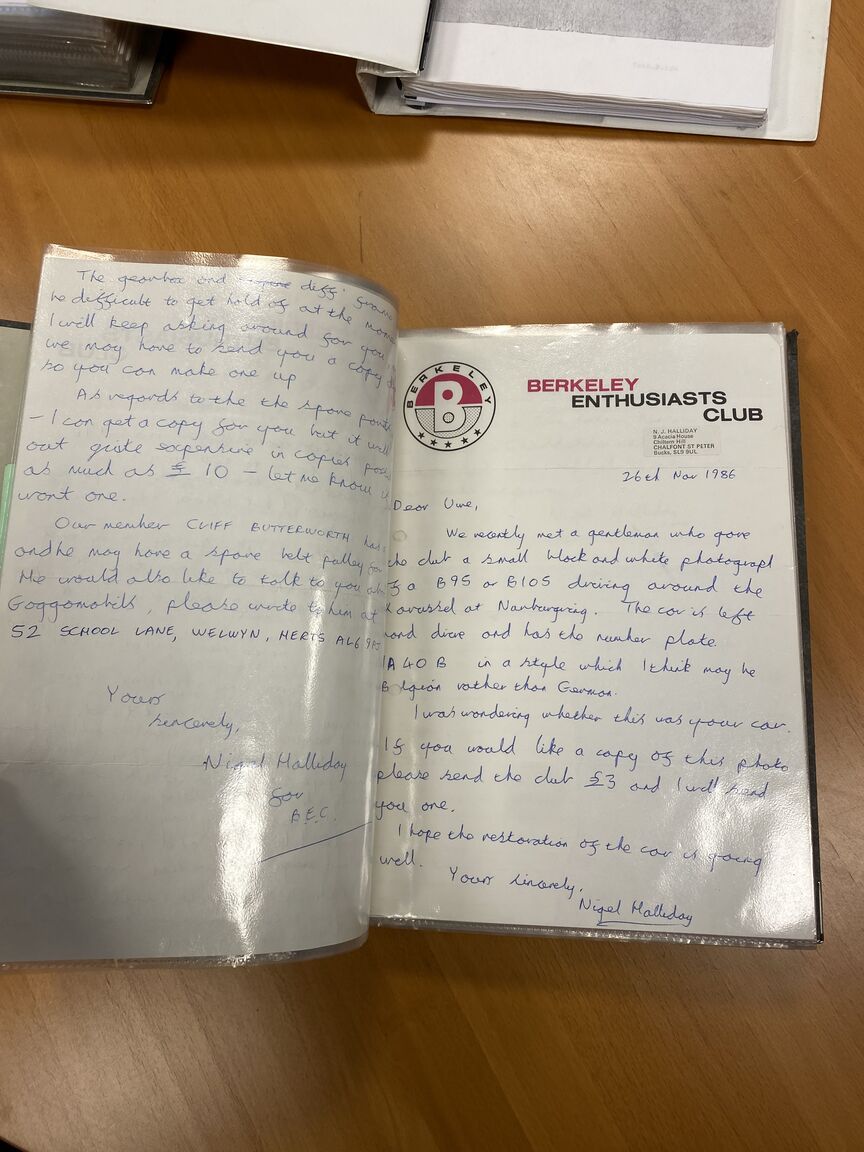 The gearbox and diff
be difficult to get hold of at the
I will keep asking around for you
we may have to send you a copy
so you can make one up
As regards to the the spare parts
– I can get a copy for you but it will
out quite expensive in copies
as much as £10 – let me know
want one.
Our member CLIFF BUTTERWORTH has
and he may have a spare belt pulley for
He would also like to talk to you
Goggomobils, please write to him at
52 SCHOOL LANE, WELWYN, HERTS AL6
Yours
sincerely,
Nigel Halliday
for
B.E.C.
BERKELEY
B
BERKELEY
ENTHUSIASTS
CLUB
N. J. HALLIDAY
9 Acacia House
Chiltern Hill
CHALFONT ST PETER
Bucks, SL9 9UL
26th Nov 1986
Dear Uwe,
We recently met a gentleman who gave
the club a small black and white photograph
of a B95 or B105 driving around the
Karussel at Nurburgring. The car is left
hand drive and has the number plate
1A40B in a style which I think may be
Belgian rather than German.
I was wondering whether this was your car.
If you would like a copy of this photo
please send the club £3 and I will send
you one.
I hope the restoration of the car is going
well.
Yours sincerely,
Nigel Halliday